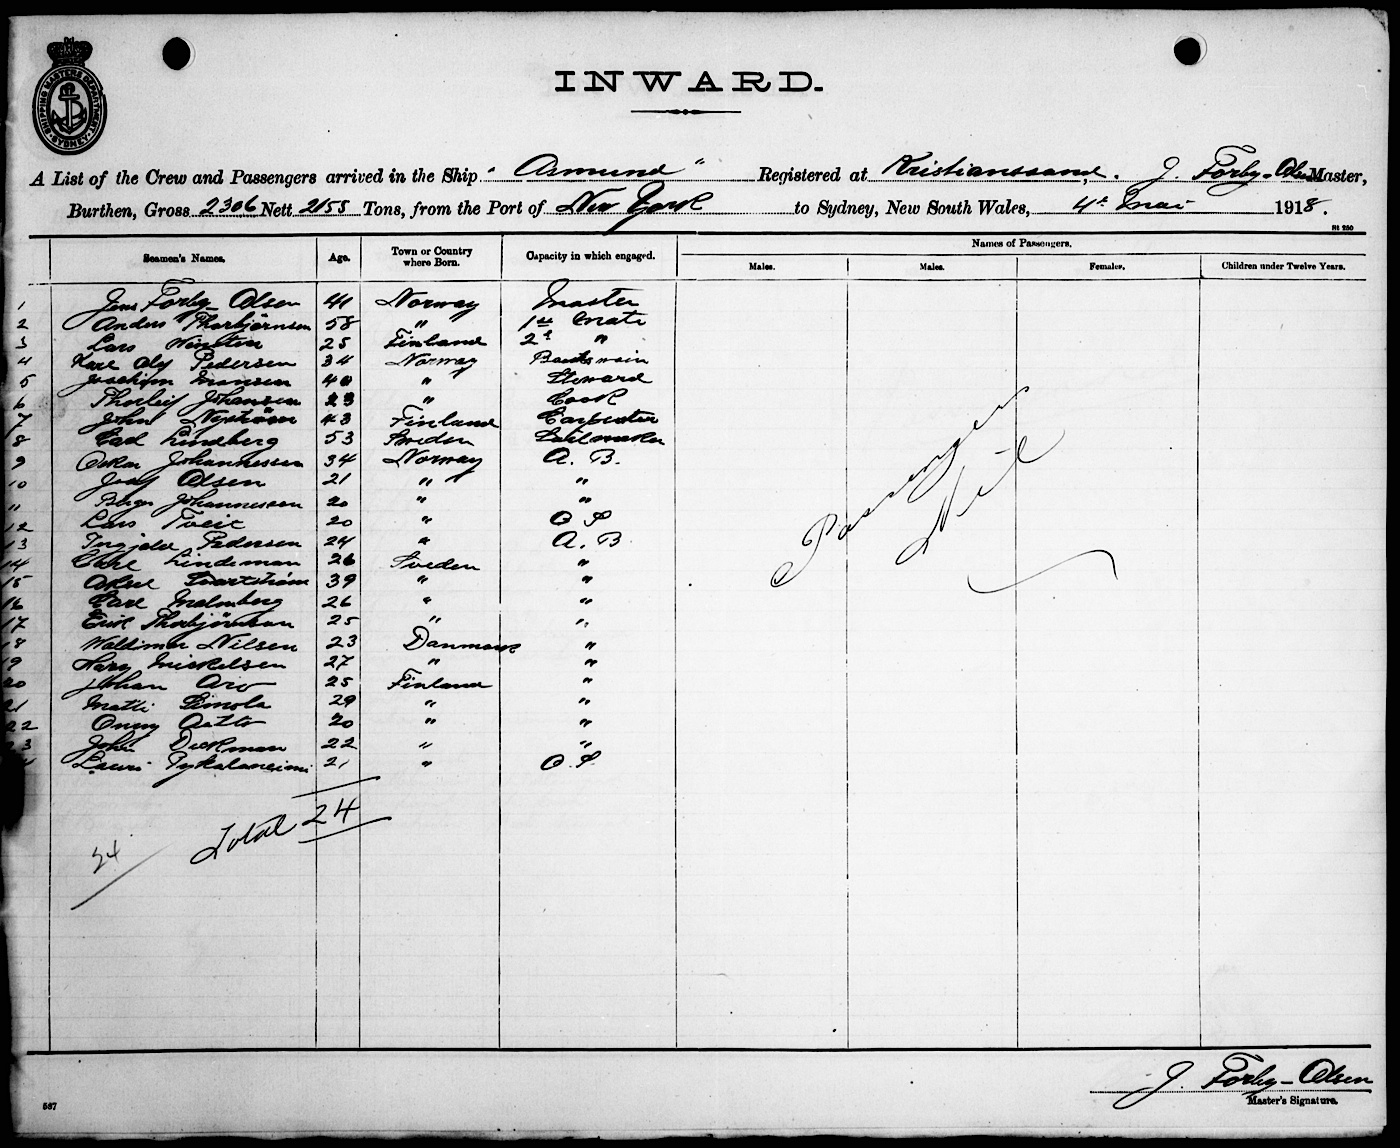 SHIPPING MASTERS DEPARTMENT SYDNEY
INWARD.
A List of the Crew and Passengers arrived in the Ship "Asmund" Registered at Kristianssand. J. Forby-Olsen Master,
Burthen, Gross 2306 Nett 2158 Tons, from the Port of New York to Sydney, New South Wales, 4th Mai 1918.
St 250
Seamen's Names. Age. Town or Country where Born. Capacity in which engaged. Names of Passengers.
Males. Males. Females. Children under Twelve Years.
1 Jens Forby-Olsen 41 Norway Master
2 Anders Thorbjörnsen 58 " 1st Mate
3 Lars 25 Finland 2d "
4 Karl Olof Pedersen 34 Norway Boatswain
5 Joachim Monsen 40 " Steward
6 Thorleif Johansen 23 " Cook
7 John Nyström 43 Finland Carpenter
8 Carl Lindberg 53 Sweden Sailmaker
9 Oskar Johannessen 34 Norway A. B.
10 Olsen 21 " "
11 Birger Johannessen 20 " "
12 Lars Tveit 20 " O S
13 Ingjald Pedersen 24 " A. B
14 Carl Lindeman 26 Sveden "
15 Aksel Svartström 39 " "
16 Carl Malmberg 26 " "
17 Erik Thorbjörnson 25 " "
18 Waldimar Nilsen 23 Danmark "
19 Harry Mickelsen 27 " "
20 Johan Aro 25 Finland "
21 Matti Simola 29 " "
22 Onny Aatto 20 " "
23 John Dickman 22 " "
Lauri 21 " O. S.
Total 24
24
Passengers
Nil
J. Forby-Olsen
Master's Signature.
587